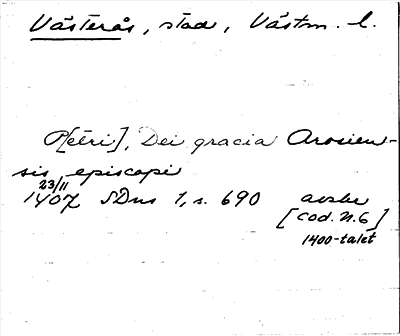 Västerås, stad, Västm. l.
P[etri], Dei gracia Arosien-
sis episcopi
23/11
1407 SDns 1, s. 690 avskr
[Cod. A. 6]
1400-talet